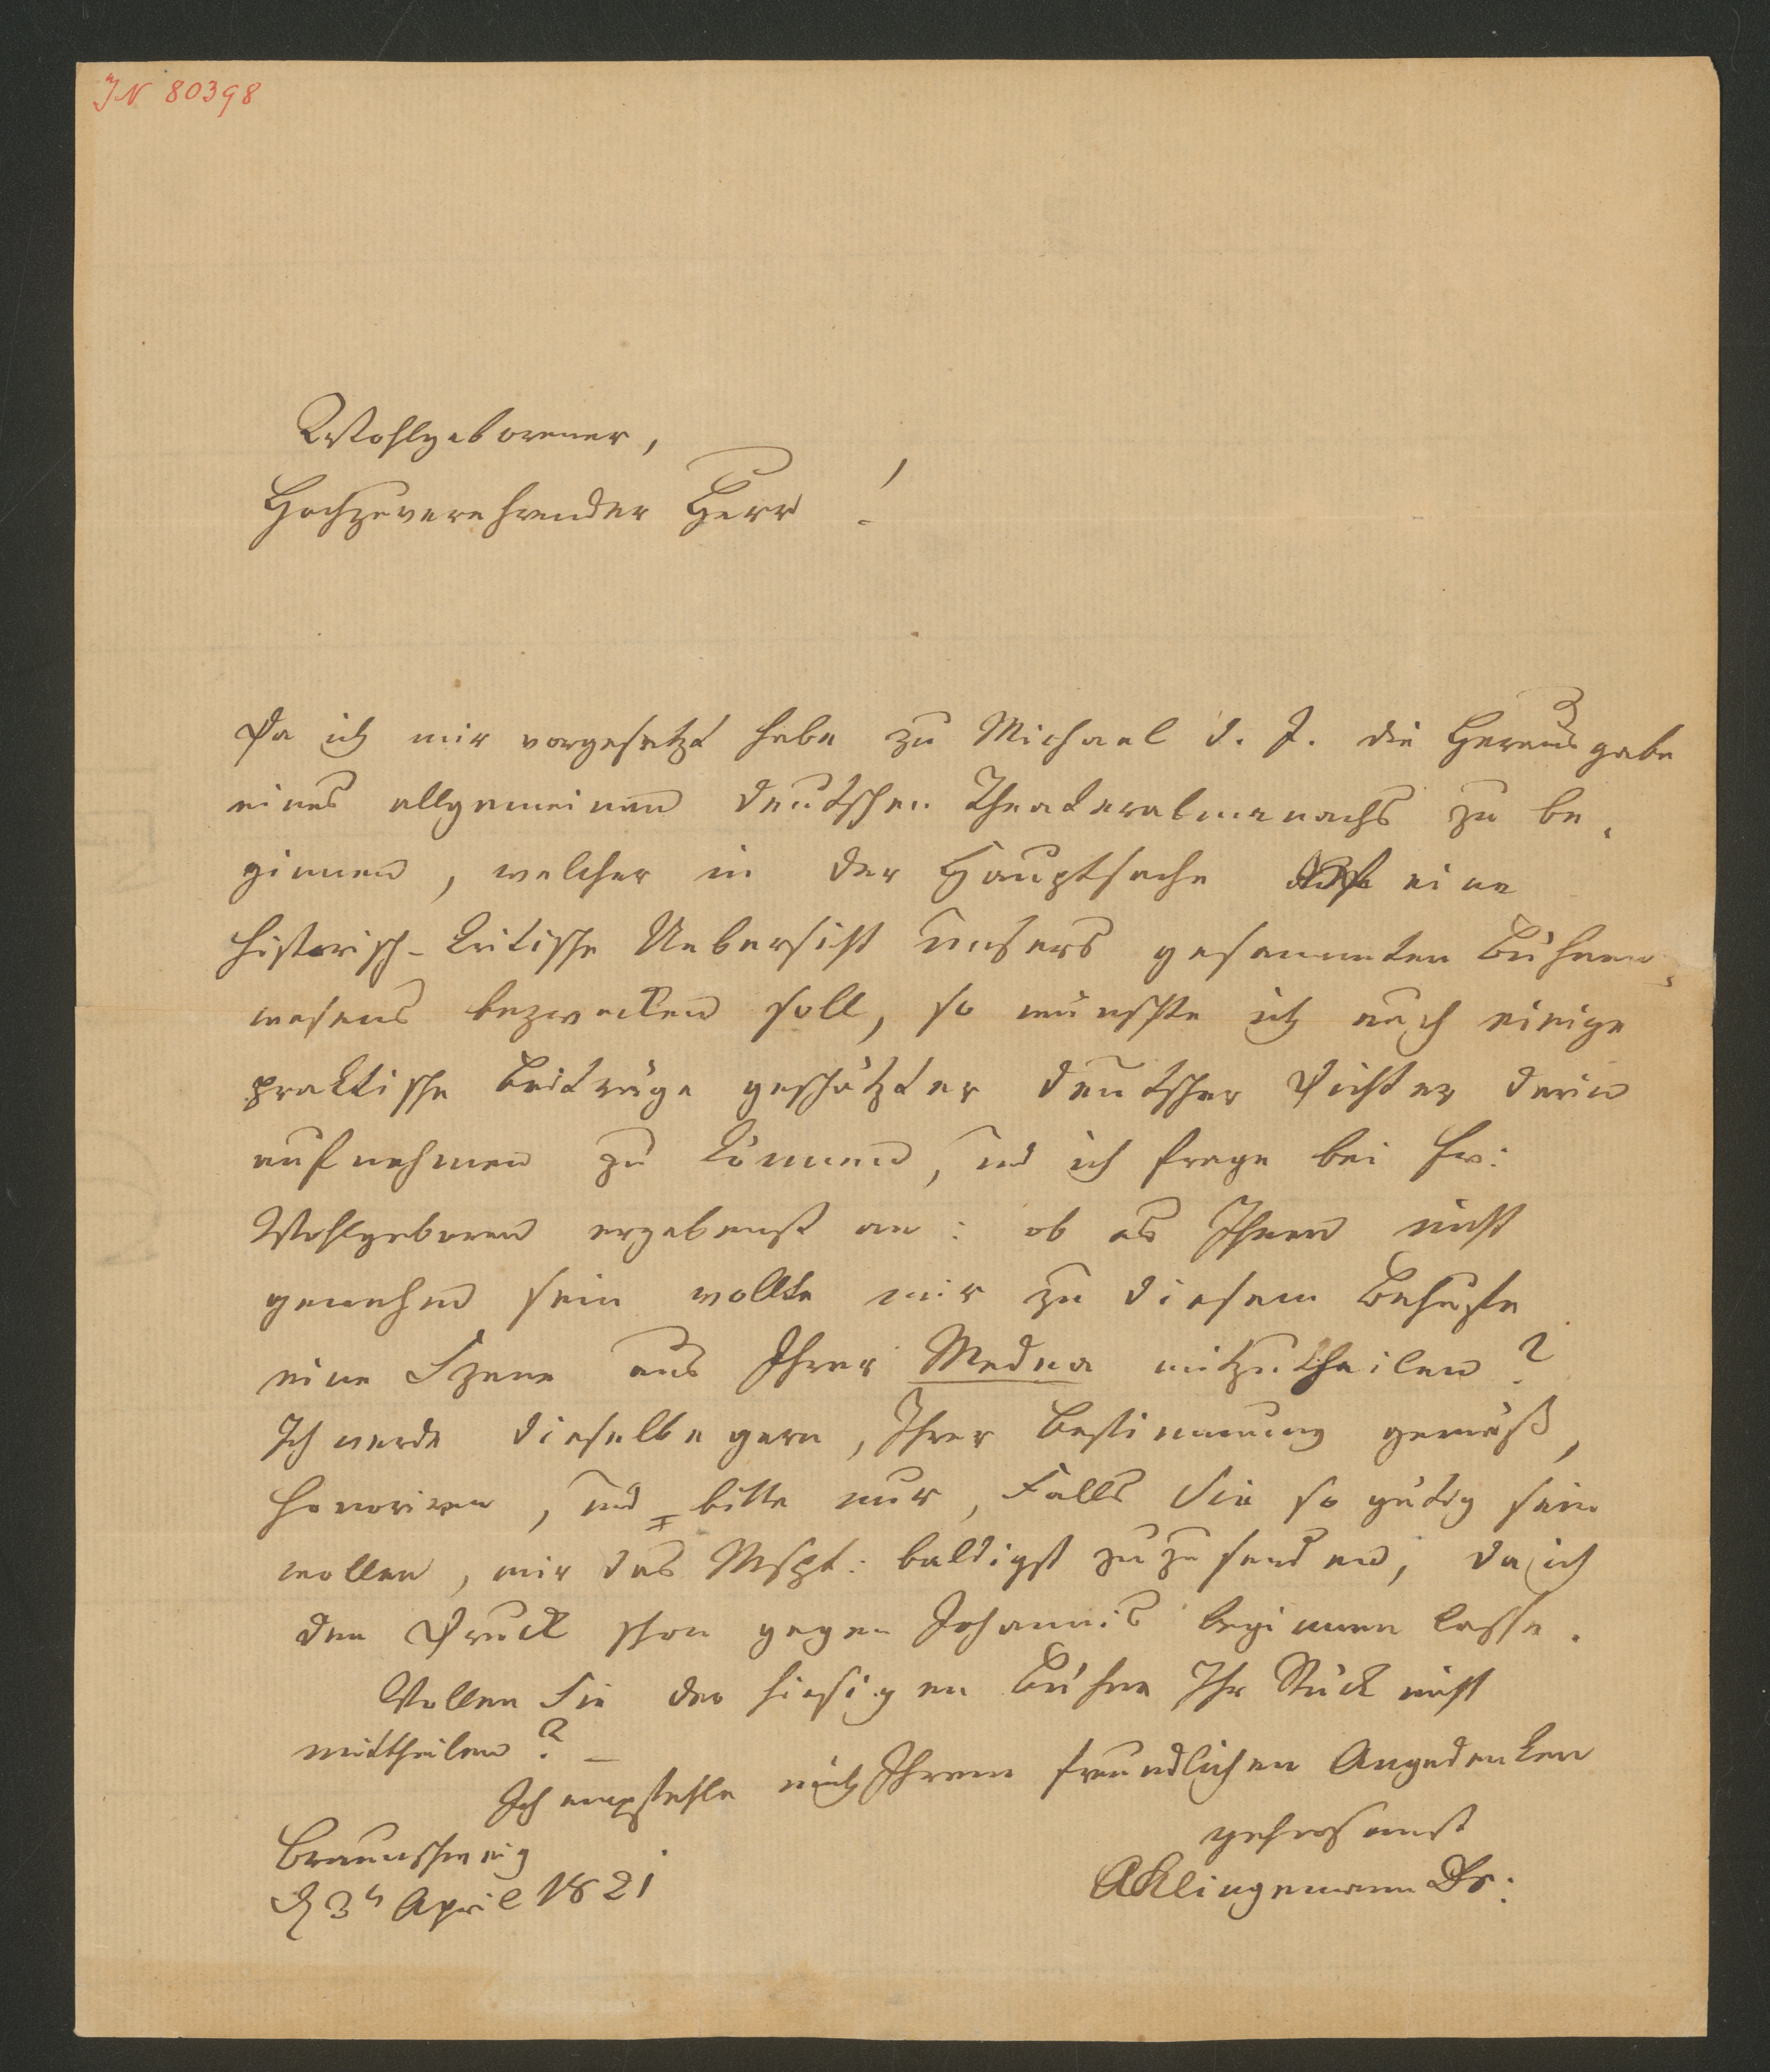 IN 80398
Wohlgeborener,
Hochzuverehrender Herr!
Da ich mir vorgesetzt habe zu Michael d. J. die Herausgabe
eines allgemeinen deutschen Theateralmanachs zu be„
ginnen, welcher in der Hauptsache eine
historisch-kritische Uebersicht unsers gesammten Bühnen„
wesens bezwecken soll, so wünschte ich auch einige
praktische Beiträge geschätzter deutscher Dichter darin
aufnehmen zu können, und ich frage bei Ew:
Wohlgeboren ergebenst an: ob es Ihnen nicht
genehm sein wollte mir zu diesem Behufe
eine Szene aus Ihrer Medea mitzutheilen?
Ich werde dieselbe gern, Ihrer Bestimmung gemäß,
honoriren, und bitte nur, Falls Sie so gütig sein
wollen, mir das Mspt: baldigst zuzusenden, da ich
den Druck schon gegen Johannis beginnen lasse.
Wollen Sie der hiesigen Bühne Ihr Stück nicht
mittheilen? –
Ich empfehle mich Ihrem freundlichen Angedenken
gehorsamst
Braunschweig
AKlingemann Dr:
d 3t April 1821